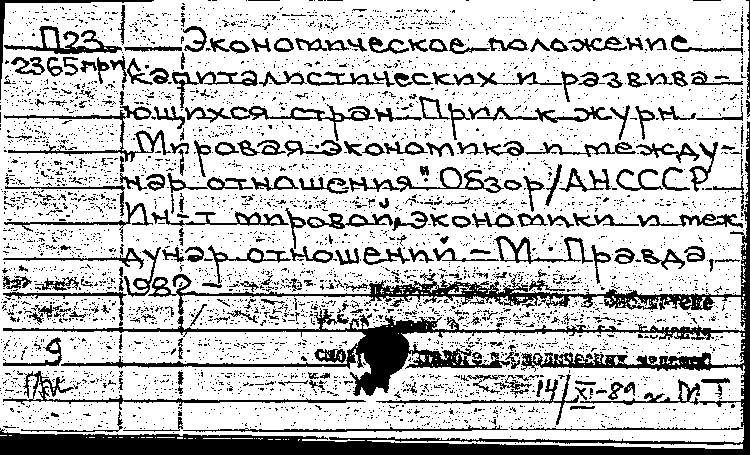 П23
2365прил.
Экономическое положение
капиталистических и развива-
ющихся стран. Прил. к журн.
"Мировая экономика и между-
нар отношения". Обзор/АНСССР
Ин-т мировой экономики и меж
дунар отношений. – М: Правда,
1982 –
в библиотеке
издания
9
14/XI-89 г. М.Т.